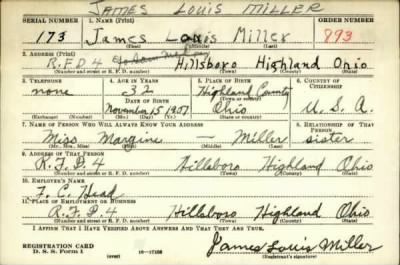 JAMES LOUIS MILLER
SERIAL NUMBER 1. NAME (Print) ORDER NUMBER
173 James Louis Miller 893
(First) (Middle) (Last)
2. ADDRESS (Print)
R.F.D 4 Hillsboro Highland Ohio
(Number and street or R. F. D. number) (Town) (County) (State)
3. TELEPHONE 4. AGE IN YEARS 5. PLACE OF BIRTH 6. COUNTRY OF CITIZENSHIP
none 32 Highland County
DATE OF BIRTH (Town or county)
November 15, 1907 Ohio U.S.A.
(Exchange) (Number) (Mo.) (Day) (Yr.) (State or country)
7. NAME OF PERSON WHO WILL ALWAYS KNOW YOUR ADDRESS 8. RELATIONSHIP OF THAT PERSON
Miss — Miller sister
(Mr., Mrs., Miss) (First) (Middle) (Last)
9. ADDRESS OF THAT PERSON
R.F.D.4 Hillsboro Highland Ohio
(Number and street or R. F. D. number) (Town) (County) (State)
10. EMPLOYER'S NAME
F. C. Head
11. PLACE OF EMPLOYMENT OR BUSINESS
R.F.D.4 Hillsboro Highland Ohio
(Number and street or R. F. D. number) (Town) (County) (State)
I AFFIRM THAT I HAVE VERIFIED ABOVE ANSWERS AND THAT THEY ARE TRUE.
REGISTRATION CARD James Louis Miller
D. S. S. Form 1 (Registrant's signature)
(over)